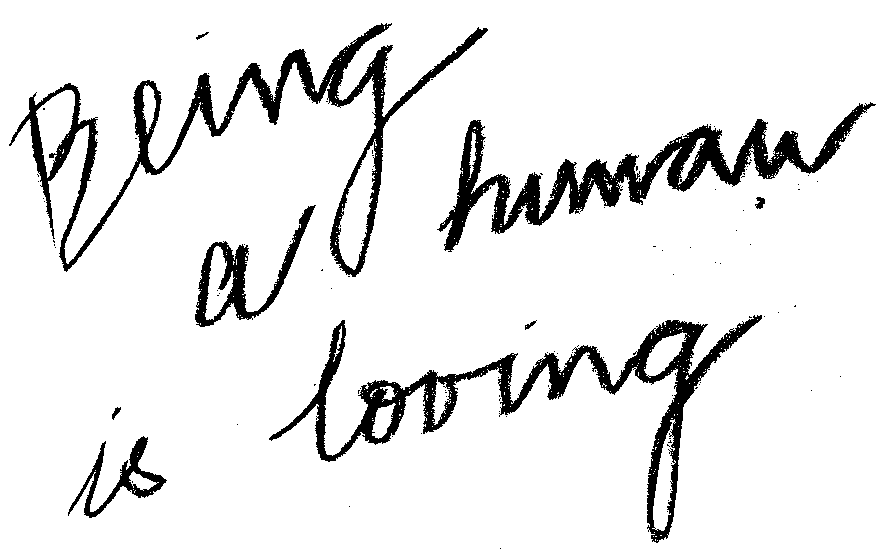 Being
a human
is loving